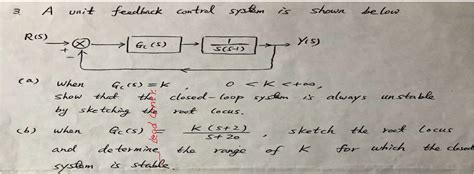 3. A unit feedback control system is shown below
R(s) + - Gc(s) 1/s(s-1) Y(s)
(a) when Gc(s) = K , 0 < K < +∞,
show that the closed-loop system is always unstable
by sketching the root locus.
(b) when Gc(s) = K(s+2)/s+20 , sketch the root locus
and determine the range of K for which the closed
system is stable.